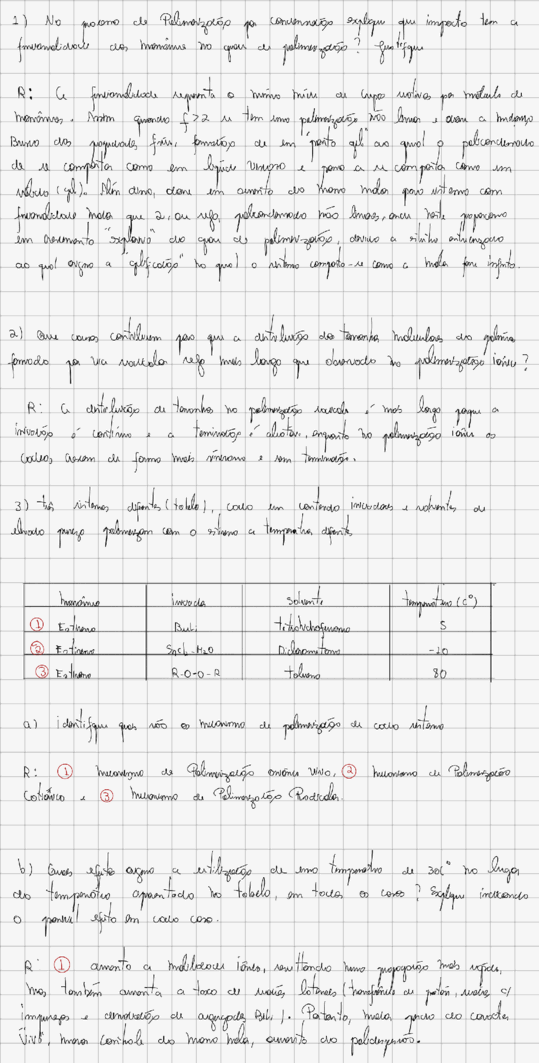 1) No processo de Polimerização por condensação explique que impacto tem a
funcionalidade dos monómeros no grau de polimerização? Justifique
R: A funcionalidade representa o número médio de grupos reativos por molécula de
monómeros. Assim quando f>2 se tem uma polimerização não linear e ocorre a mudança
Brusca das propriedades físicas, formação de um "ponto gel" ao qual o policondensado
de se comporta como um líquido viscoso e passa a se comporta como um
sólido (gel). Além disso, ocorre um aumento da massa molar para sistema com
funcionalidade maior que 2, ou seja, policondensado não lineares, onde neste proporciona
um crescimento "explosivo" do grau de polimerização, devido a
ao qual origina a "gelificação" no qual o sistema comporta-se como a molar fosse infinito.
2) Que causas contribuem para que a distribuição do tamanho moleculares do polímero
formado por via radicalar seja mais largo que observado na polimerização iónica?
R: A distribuição de tamanho na polimerização radicalar é mais largo porque a
iniciação é contínua e a terminação é aleatória, enquanto na polimerização iónica as
cadeias crescem de forma mais síncrona e sem terminação.
3) três sistemas diferentes (tabela), cada um contendo iniciadores e solventes de
elevado pureza polimerizam com o estireno a temperatura diferente
Monómero Iniciador Solvente temperatura (C°)
① Estireno BuLi Tetrahidrofurano 5
② Estireno SnCl4-H2O Diclorometano -20
③ Estireno R-O-O-R tolueno 80
a) identifique quais são os mecanismo de polimerização de cada sistema
R: ① Mecanismo de Polimerização aniónica vivo, ② mecanismo de Polimerização
Catiónico e ③ Mecanismo de Polimerização Radicalar.
b) Quais efeito origina a utilização de uma temperatura de 30C° no lugar
da temperatura apresentada na tabela, em todos os casos? Explique indicando
o possível efeito em cada caso.
R: ① aumento a mobilidade iónica, resultando numa propagação mais rápida,
mas também aumenta a taxa de reações laterais (transferência de protão, reação c/
impurezas e desativação de BuLi). Portanto, maior perda do caracter
"Vivo", menor controle da massa molar, aumento da polidispersão.